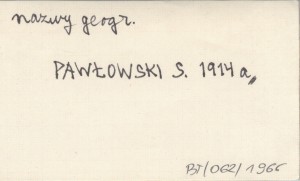 nazwy geogr.
PAWŁOWSKI S. 1914 a,
BJ/062/1966